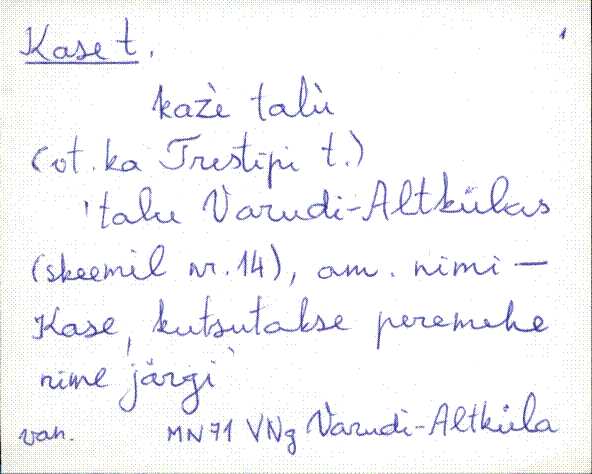 Kase t. 1
kažè talù
(vt. ka Trestipi t.)
'talu Varudi-Altkülas
(skeemil nr. 14), am. nimi —
Kase, kutsutakse peremehe
nime järgi'
van. MN 71 VNg Varudi-Altküla